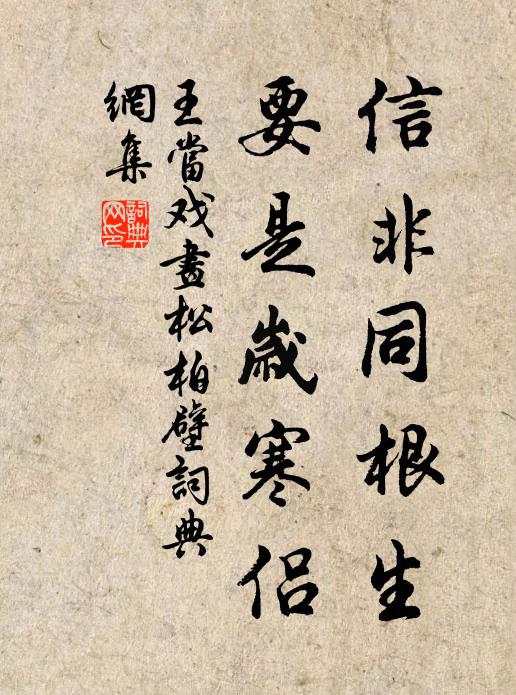 信非同根生
要是歲寒侶
王當戏畫松柏壁詞典
網集
詞典
网印